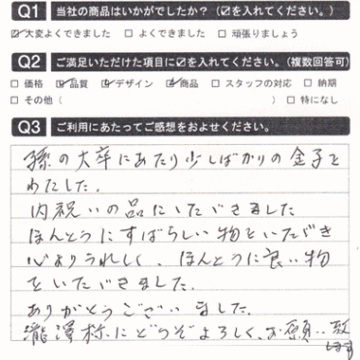 Q1 当社の商品はいかがでしたか?(☑を入れてください。)
☑大変よくできました □よくできました □頑張りましょう
Q2 ご満足いただけた項目に☑を入れてください。(複数回答可)
□価格 ☑品質 ☑デザイン ☑商品 □スタッフの対応 □納期
□その他( ) □特になし
Q3 ご利用にあたってご感想をおよせください。
孫の大卒にあたり少しばかりの金子を
わたした.
内祝いの品にいただきました
ほんとうにすばらしい物をいただき
心よりうれしく、ほんとうに良い物
をいただきました.
ありがとうございました.
瀧澤様にどうぞよろしく、お願い致
します